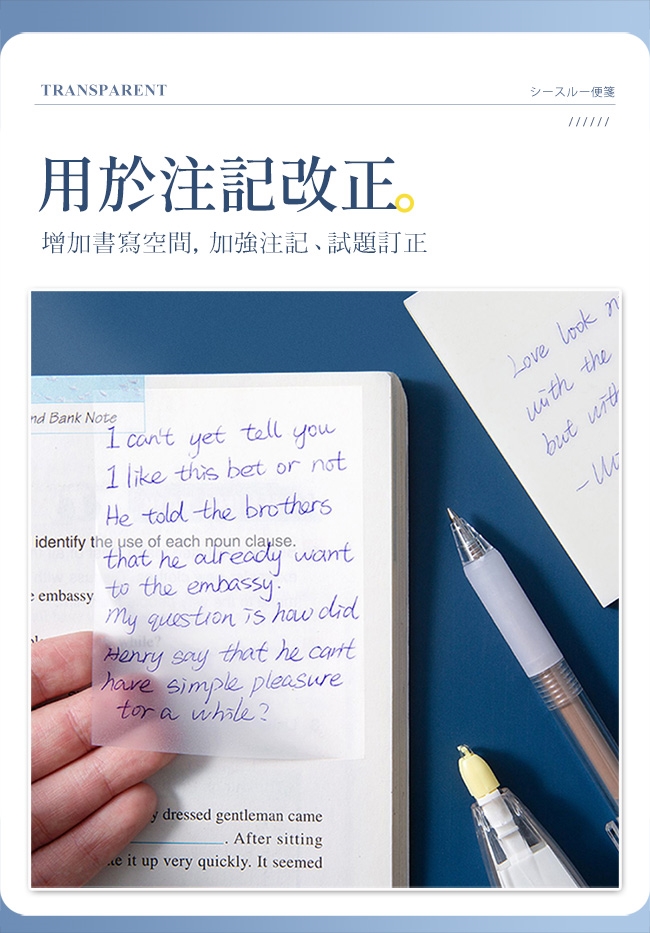 TRANSPARENT
シースルー便箋
//////
用於注記改正。
增加書寫空間, 加強注記、試題訂正
nd Bank Note
I can't yet tell you
I like this bet or not
He told the brothers
identify the use of each noun clause.
that he already want
to the embassy.
e embassy
My question is how did
Henry say that he can't
have simple pleasure
for a while?
y dressed gentleman came
. After sitting
e it up very quickly. It seemed
Love look n
with the
but with